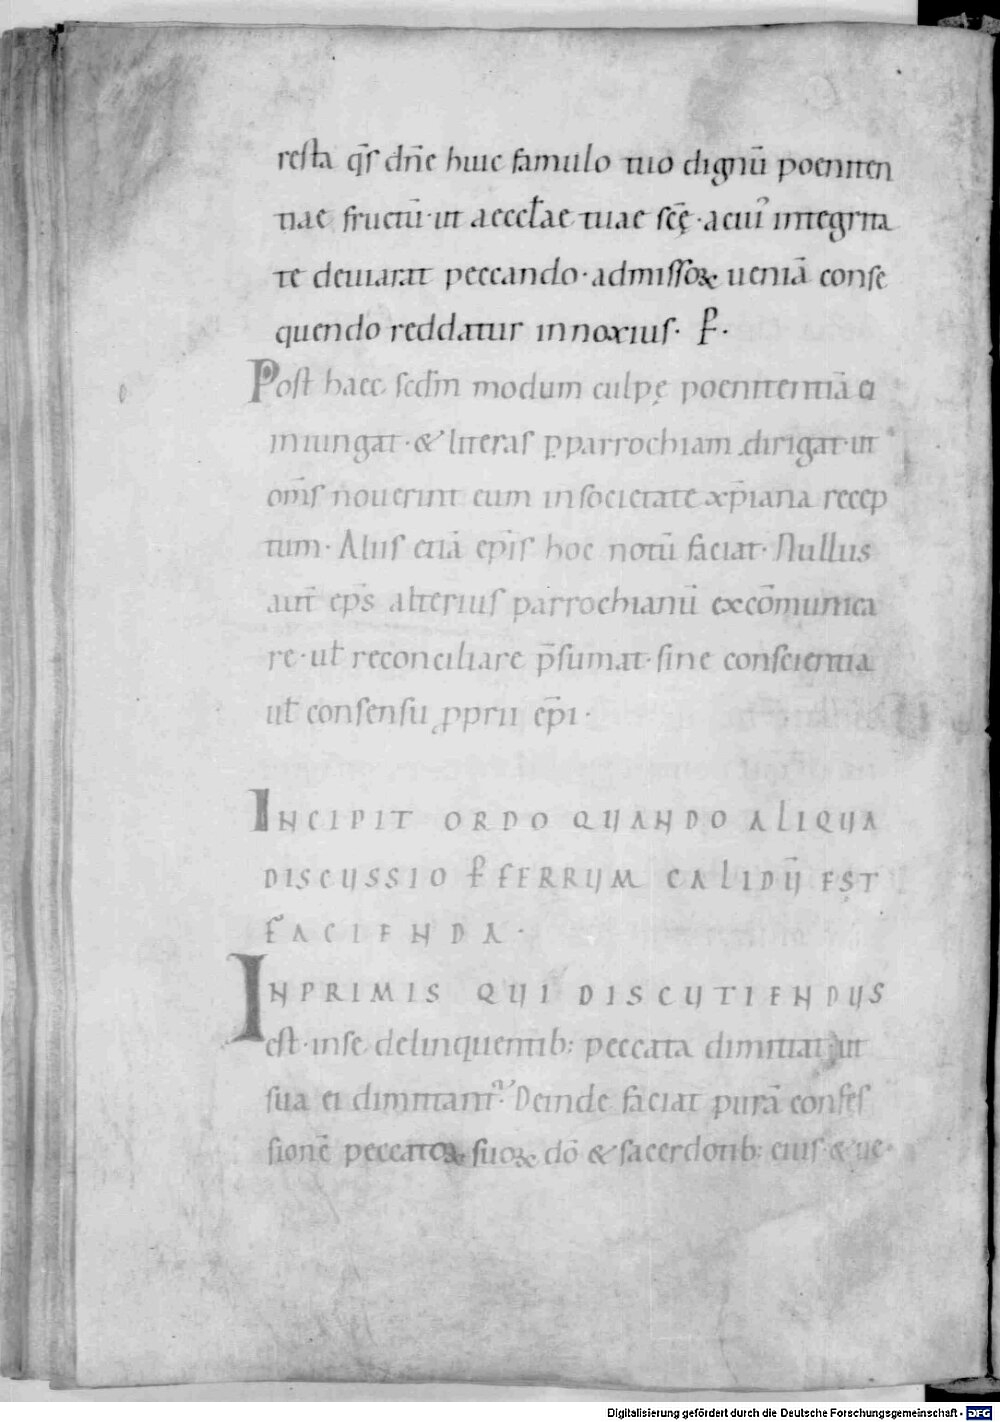 resta q̄s dn̄e huic famulo tuo dignū poeniten
tiae fructū · ut aecctae tuae sc̄ę · a cui' integrita
te deuiarat peccando · admissoꝝ ueniā conse
quendo reddatur innoxius · P̄ ·
Post haec scdm̄ modum culpę poenitentiā ei
iniungat · & literas p̲ parrochiam dirigat · ut
om̄s nouerint eum in societate xp̄iana recep
tum · Aliis etiā ep̄is hoc notū faciat · Nullus
aut̄ ep̄s alterius parrochianū excōmunica
re · ut reconciliare p̄sumat · sine conscientia
ut consensu ꝓprii ep̄i ·
INCIPIT ORDO QUANDO ALIQUA
DISCUSSIO P̄ FERRUM CALIDŪ EST
FACIENDA ·
INPRIMIS QUI DISCUTIENDUS
est · in se delinquentib: peccata dimittat ut
sua ei dimittant · Deinde faciat purā confes
sionē peccatoꝝ suoꝝ dō & sacerdotib: eius · & ue
Digitalisierung gefördert durch die Deutsche Forschungsgemeinschaft - DFG